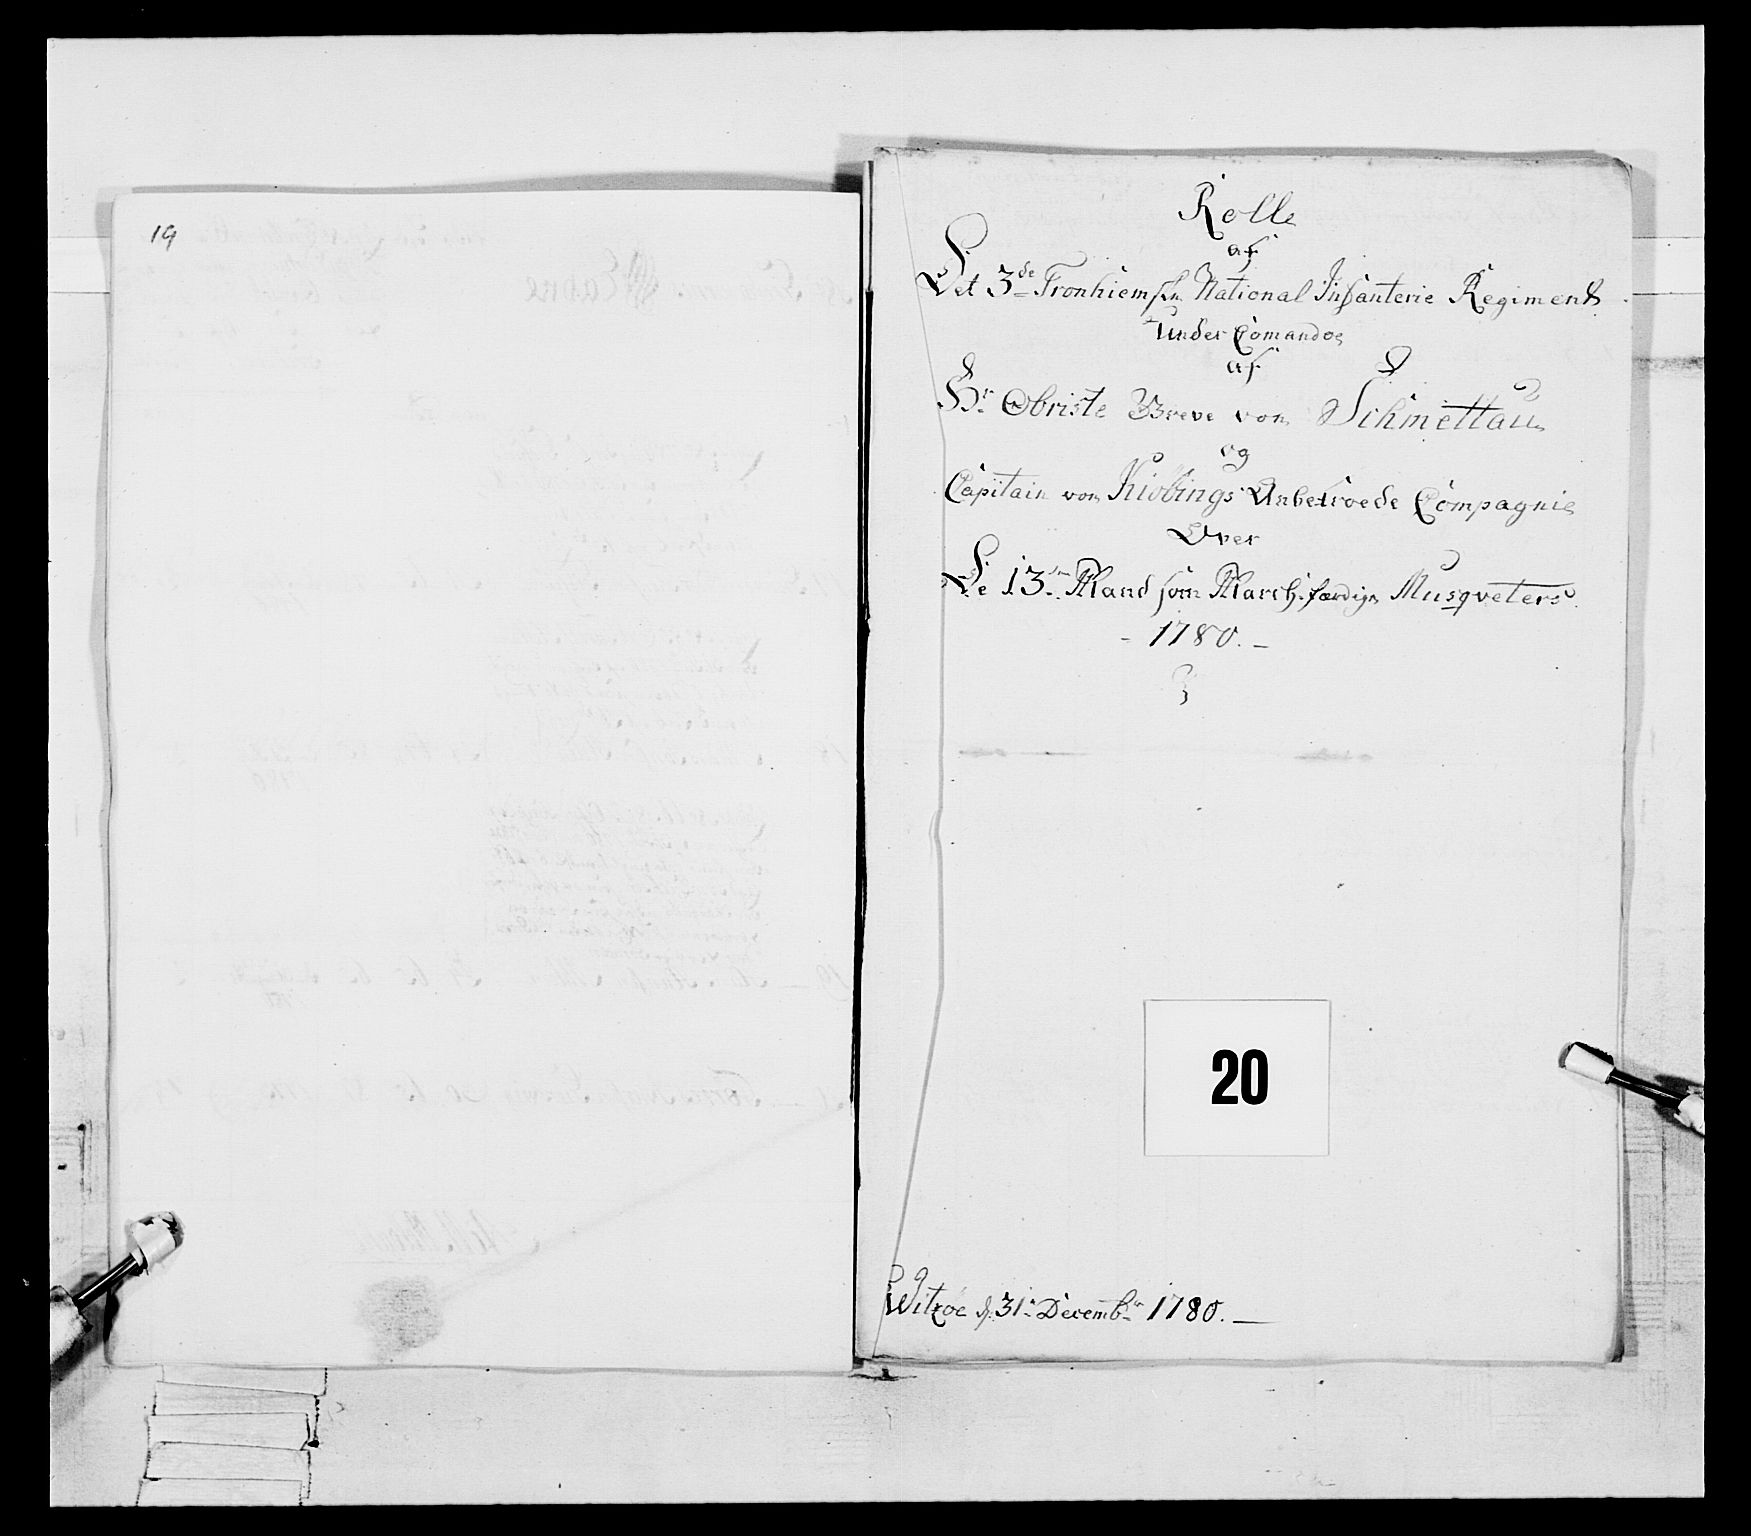 19
Rolle
af
Det 3de Tronhiemske National Infanterie Regiment
Under Comando
af
Hr. Obriste Greve von Schmettau
og
Capitain von Kiöbings Anbetroede Compagnie
Over
De 13en Mand som Marchfærdige Musqveters
- 1780. -
20
d. 31te Decembr. 1780. -